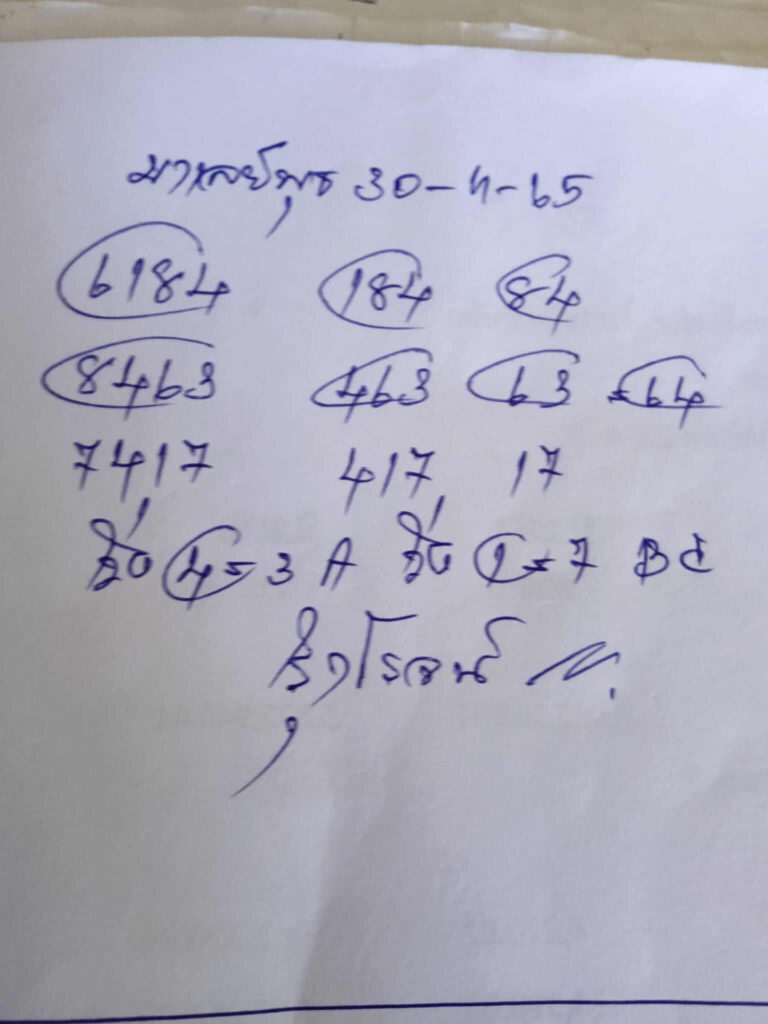 มาเลย์พุธ 30-4-65
6184 184 84
8463 463 63 = 64
7417 417 17
วิ่ง 4 = 3 A วิ่ง 1 = 7 BC